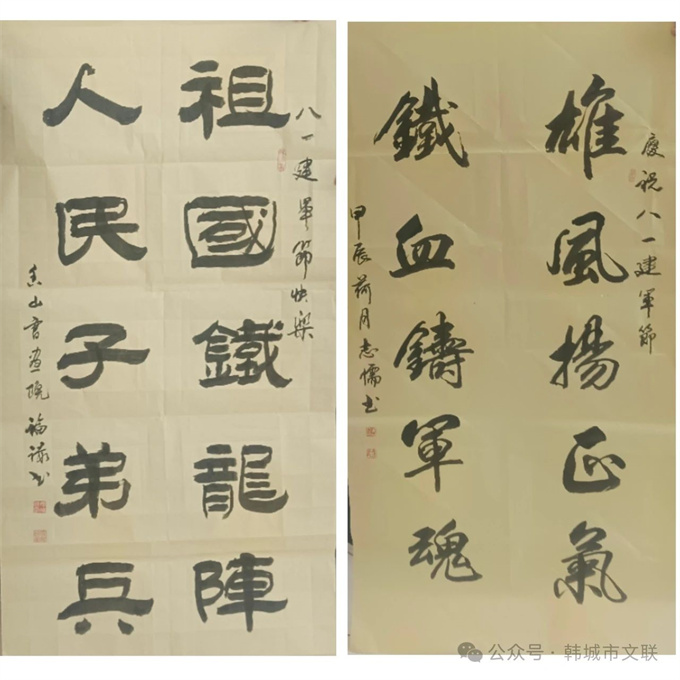 八一建軍節快樂
祖國鐵龍陣
人民子弟兵
香山書畫院 福禄书
慶祝八一建軍節
雄風揚正氣
鐵血鑄軍魂
甲辰荷月志儒书
公众号·韩城市文联